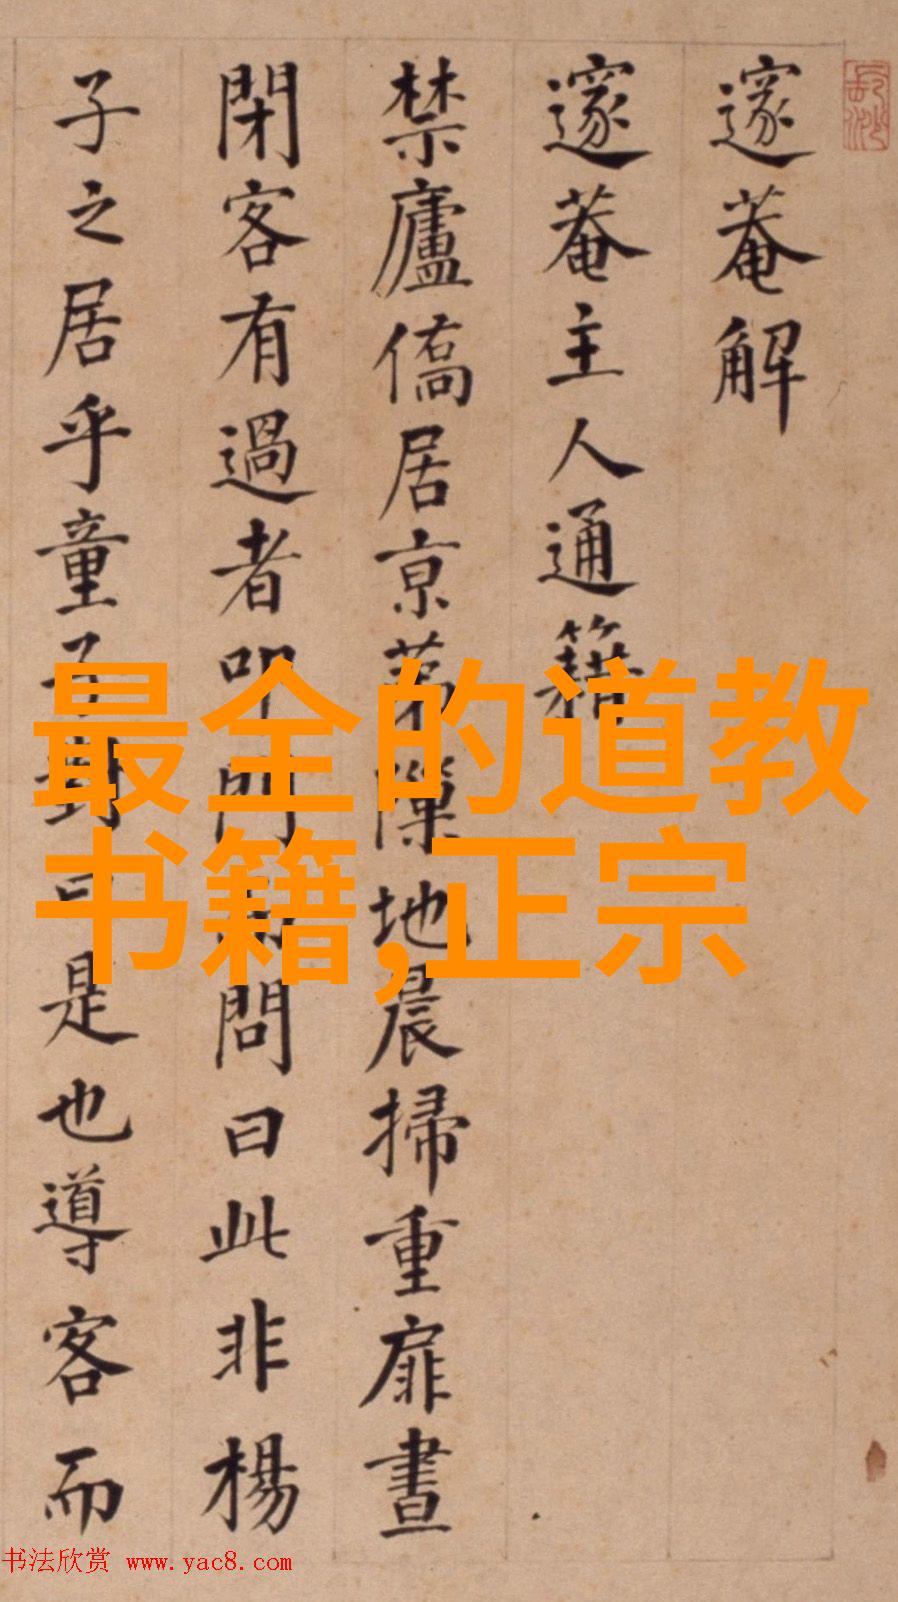 邃菴解
邃菴主人通籍
禁廬僑居京苐隙地晨掃重扉晝
閉客有過者叩門問曰此非楊
子之居乎童子對曰是也導客而
最全的道教
书籍,正宗
书法欣赏 www.yac8.com